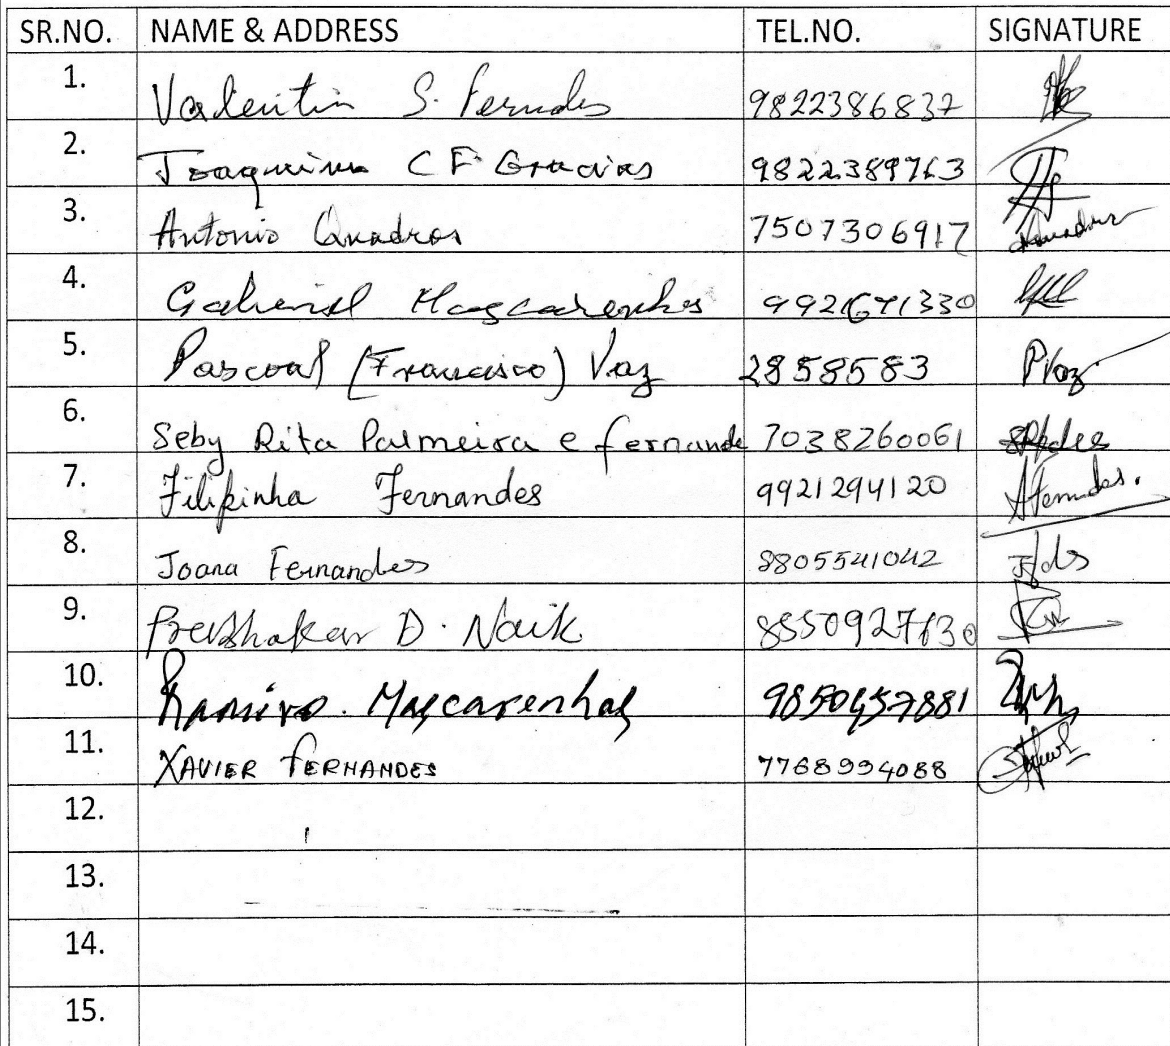 SR.NO. NAME & ADDRESS TEL.NO. SIGNATURE
1. Valentin S. Fernandes 9822386837
2. Joaquim C F Gracias 9822389763
3. Antonio Quadros 7507306917 Quadros
4. Gabriel Mascarenhas 9921671330
5. Pascoal (Francisco) Vaz 2858583 PVaz
6. Seby Rita Palmeira e fernande 7038260061
7. Filipinha Fernandes 9921294120 AFernandes.
8. Joana Fernandes 8805541042 Jfds
9. Prabhakar D. Naik 8550927630
10. Ramiro. Mascarenhas 9850457881
11. XAVIER FERNANDES 7768994088
12.
13.
14.
15.